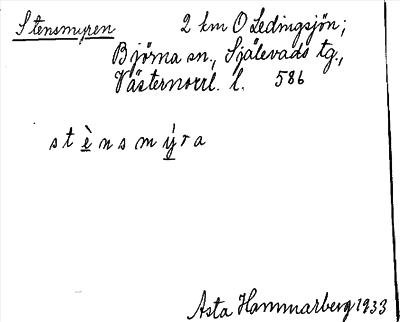 Stensmyren 2 km O Ledingsjön;
Björna sn., Själevads tg.,
Västernorrl. l. 586
stè̲nsmý̲ra
Asta Hammarberg 1933